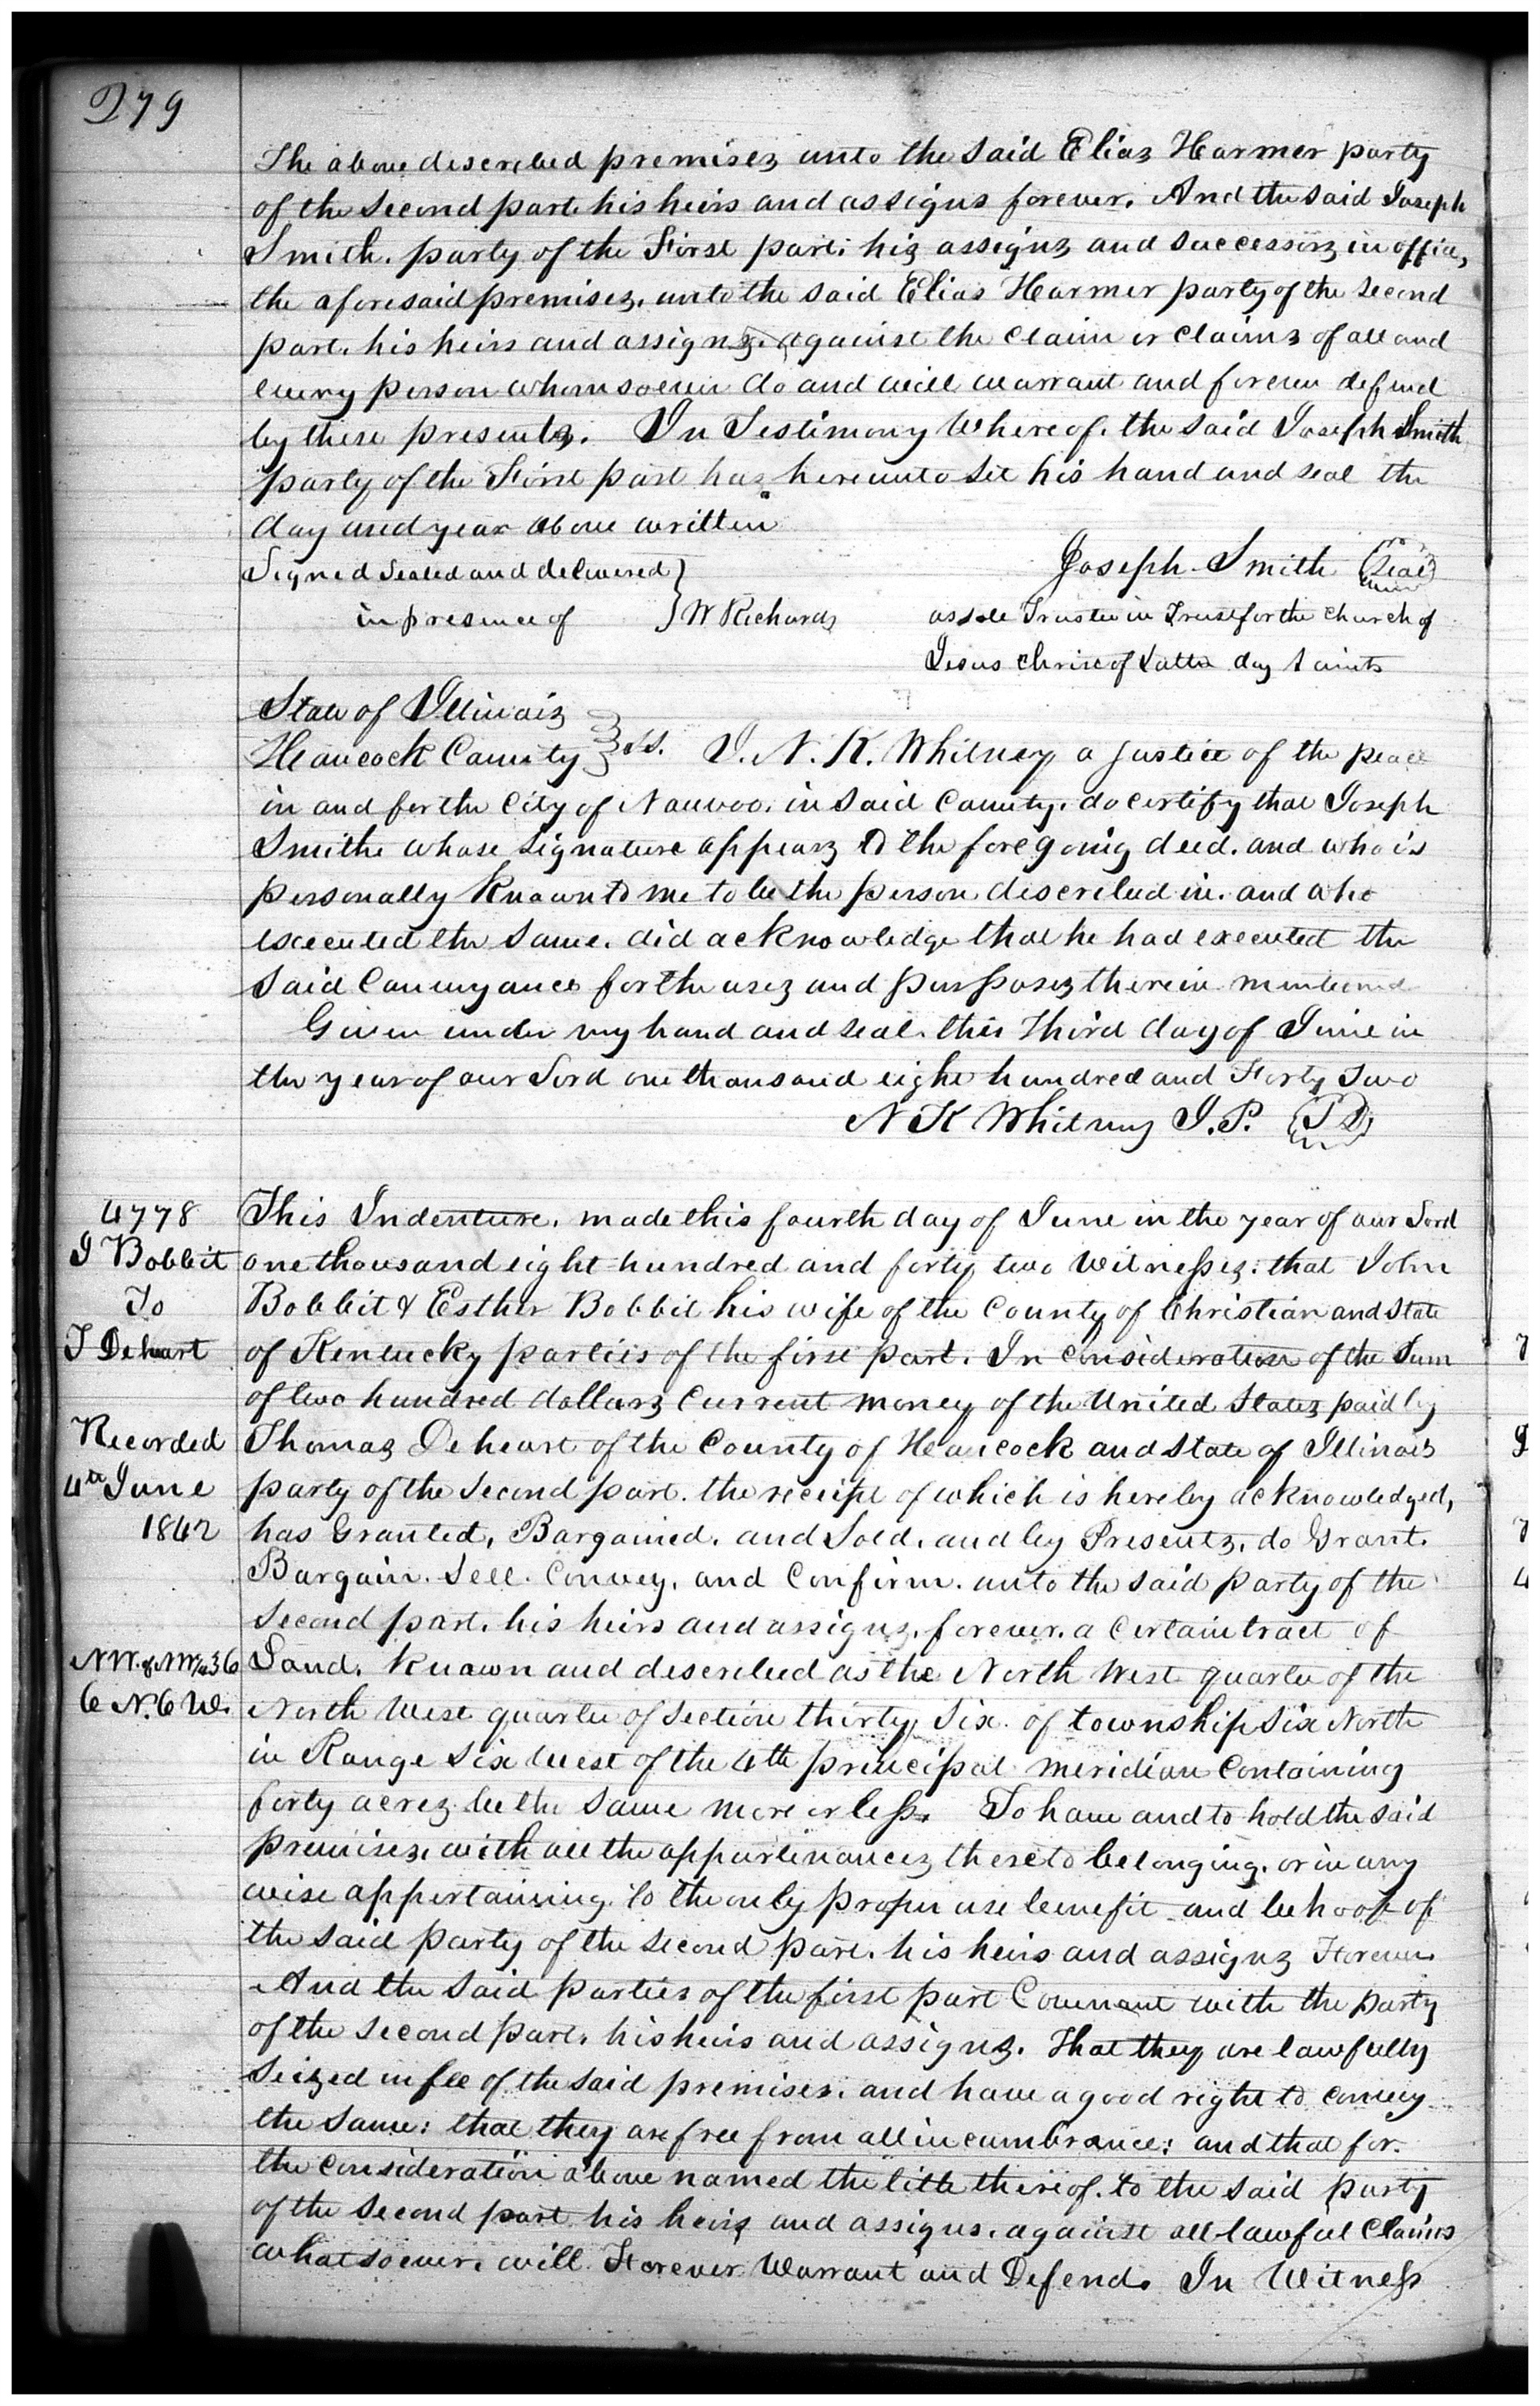 279
The above described premises unto the said Elias Harmer party
of the second part his heirs and assigns forever. And the said Joseph
Smith. party of the First part. his assigns and successors in office,
the aforesaid premises. unto the said Elias Harmer party of the second
part. his heirs and assigns. against the claim or claims of all and
every person whomsoever do and will warrant and forever defend
by these presents. In Testimony Whereof. the said Joseph Smith
party of the First part has hereunto set his hand and seal the
day and year above written
Signed Sealed and delivered } Joseph Smith (Seal)
in presence of } W Richards as sole Trustee in Trust for the Church of
Jesus Christ of Latter day Saints
State of Illinois
Hancock County } ss. I. N. K. Whitney a justice of the peace
in and for the City of Nauvoo. in said County. do certify that Joseph
Smith whose signature appears to the foregoing deed. and who is
personally known to me to be the person described in. and who
executed the same. did acknowledge that he had executed the
said Conveyance for the uses and purposes therein mentioned
Given under my hand and seal. this Third day of June in
the year of our Lord one thousand eight hundred and Forty Two
N K Whitney J.P.
4778
J Bobbit
To
T Dehart
Recorded
4th June
1842
NW. of NW 1/4 36
6 N. 6 W.
This Indenture. made this fourth day of June in the year of our Lord
one thousand eight hundred and forty two Witnesses: that John
Bobbit & Esther Bobbit his wife of the County of Christian and State
of Kentucky parties of the first part. In consideration of the Sum
of two hundred dollars current money of the United States paid by
Thomas Deheart of the County of Hancock and State of Illinois
party of the second part. the receipt of which is hereby acknowledged,
has Granted, Bargained. and Sold. and by Presents. do Grant.
Bargain. Sell. Convey. and Confirm. unto the said party of the
second part. his heirs and assigns. forever. a certain tract of
Land. known and described as the North West quarter of the
North West quarter of section thirty six. of township six North
in Range six West of the 4th principal meridian containing
forty acres be the same more or less. To have and to hold the said
premises. with all the appurtinances thereto belonging. or in any
wise appertaining. to the only proper use benefit and behoof of
the said party of the second part. his heirs and assigns Forever
And the said parties of the first part Covenant with the party
of the second part. his heirs and assigns. That they are lawfully
Seized in fee of the said premises. and have a good right to convey
the same: that they are free from all incumbrance: and that for
the consideration above named the title thereof. to the said party
of the second part his heirs and assigns. against all lawful claims
whatsoever. will Forever Warrant and Defend. In Witness